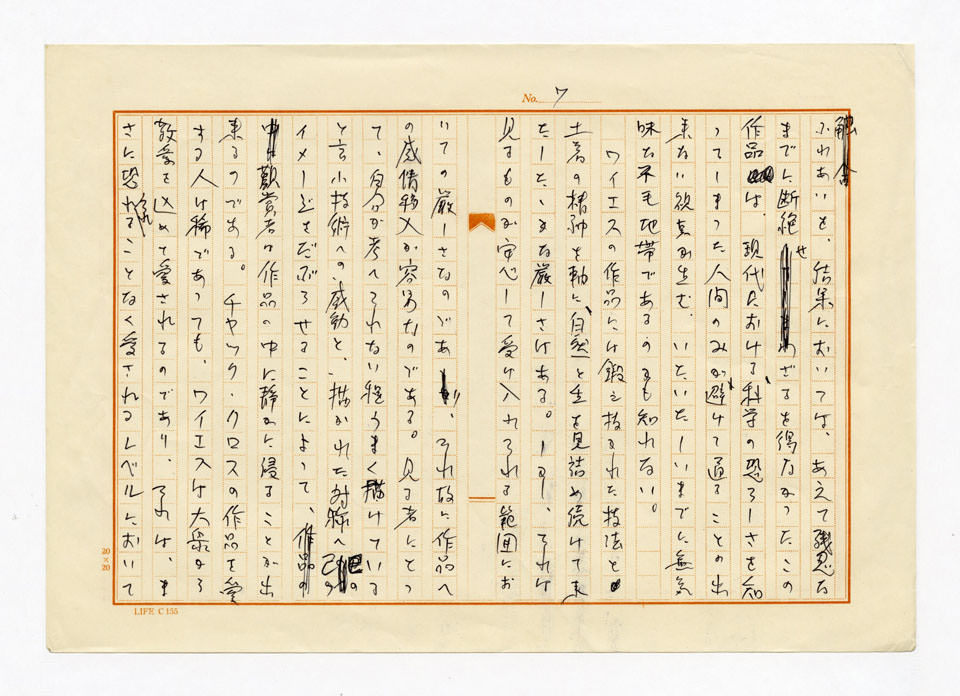 No. 7
触合
ふれあいを、結果においては、あえて残忍な
までに断絶せざるを得なかったこの
作品は、現代における科学の恐ろしさを知
ってしまった人間のみが避けて通ることの出
来ない観点が生む、いたいたしいまでに無気
味な不毛地帯であるのかも知れない。
ワイエスの作品には鍛え抜かれた技法と
土着の精神を軸に、自然と生を見詰め続けて来
た
厳しさはある。しかし、それは
見るものが安心して受け入れられる範囲にお
いての厳しさなのであり、それ故に作品へ
の感情移入が容易なのである。見る者にとっ
て、自分が考えられない程うまく描けている
と言う技術への感動と、描かれた対称へ己の
イメージをだぶらせることによって、
観賞者は作品の中に静かに浸ることが出
来るのである。チャック・クロスの作品を愛
する人は稀であっても、ワイエスは大衆から
敬愛を込めて愛されるのであり、それは、ま
さに恐れることなく愛されるレベルにおいて
20×20
LIFE C155